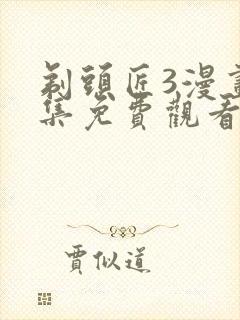 剃頭匠3漫畫
集免費觀看
賈似道